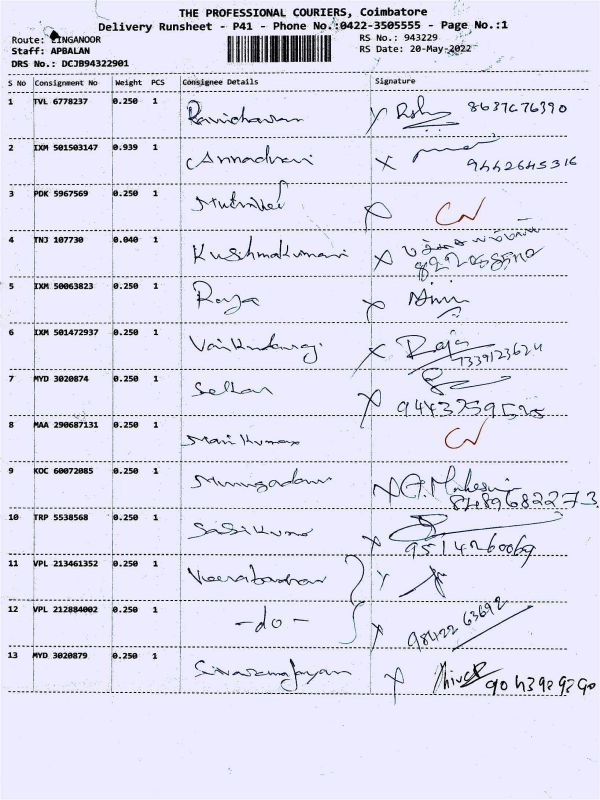 THE PROFESSIONAL COURIERS, Coimbatore
Delivery Runsheet - P41 - Phone No.:0422-3505555 - Page No.:1
Route: LINGANOOR RS No.: 943229
Staff: APBALAN RS Date: 20-May-2022
DRS No.: DCJB94322901
S No Consignment No Weight PCS Consignee Details Signature
1 TVL 6778237 0.250 1 8637676390
2 IXM 501503147 0.939 1 9442645316
3 PDK 5967569 0.250 1
4 TNJ 107730 0.040 1 Kushmakumari
5 IXM 50063823 0.250 1 Raja
6 IXM 501472937 0.250 1 Raja
7339123624
7 MYD 3020874 0.250 1 Selvan
8 MAA 290687131 0.250 1 Mari Kumar
9 KOC 60072085 0.250 1
8489682273
10 TRP 5538568 0.250 1 Sasikumar
9514260069
11 VPL 213461352 0.250 1
12 VPL 212884002 0.250 1 -do- 98422 63692
13 MYD 3020879 0.250 1